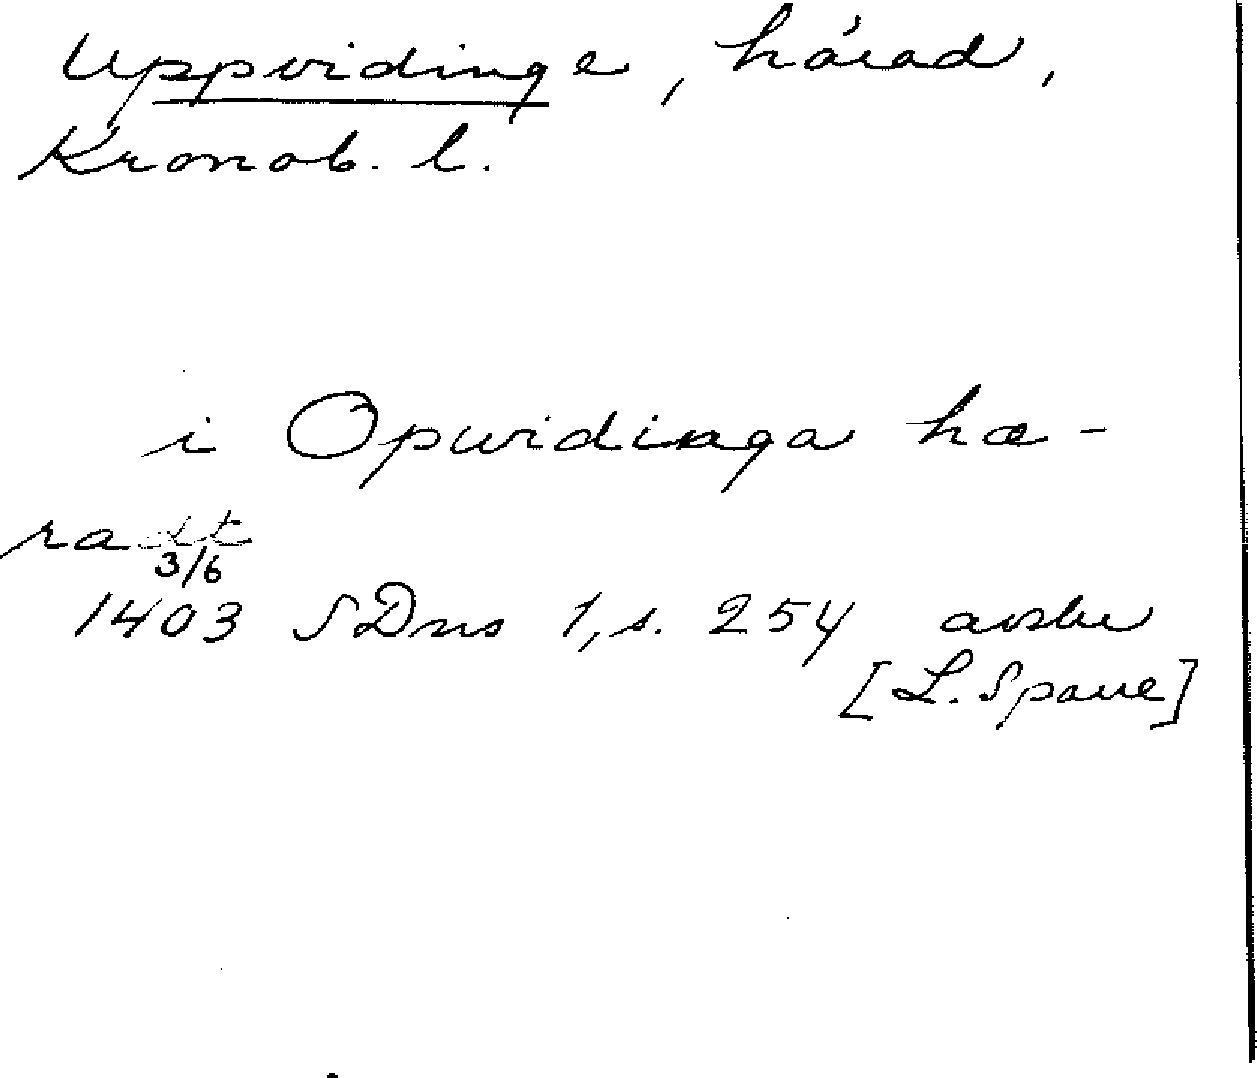 Uppvidinge, härad,
Kronob. l.
i Opwidinga hæ-
radt
3/6
1403 SDns 1, s. 254 avskr
[L. Spaue]